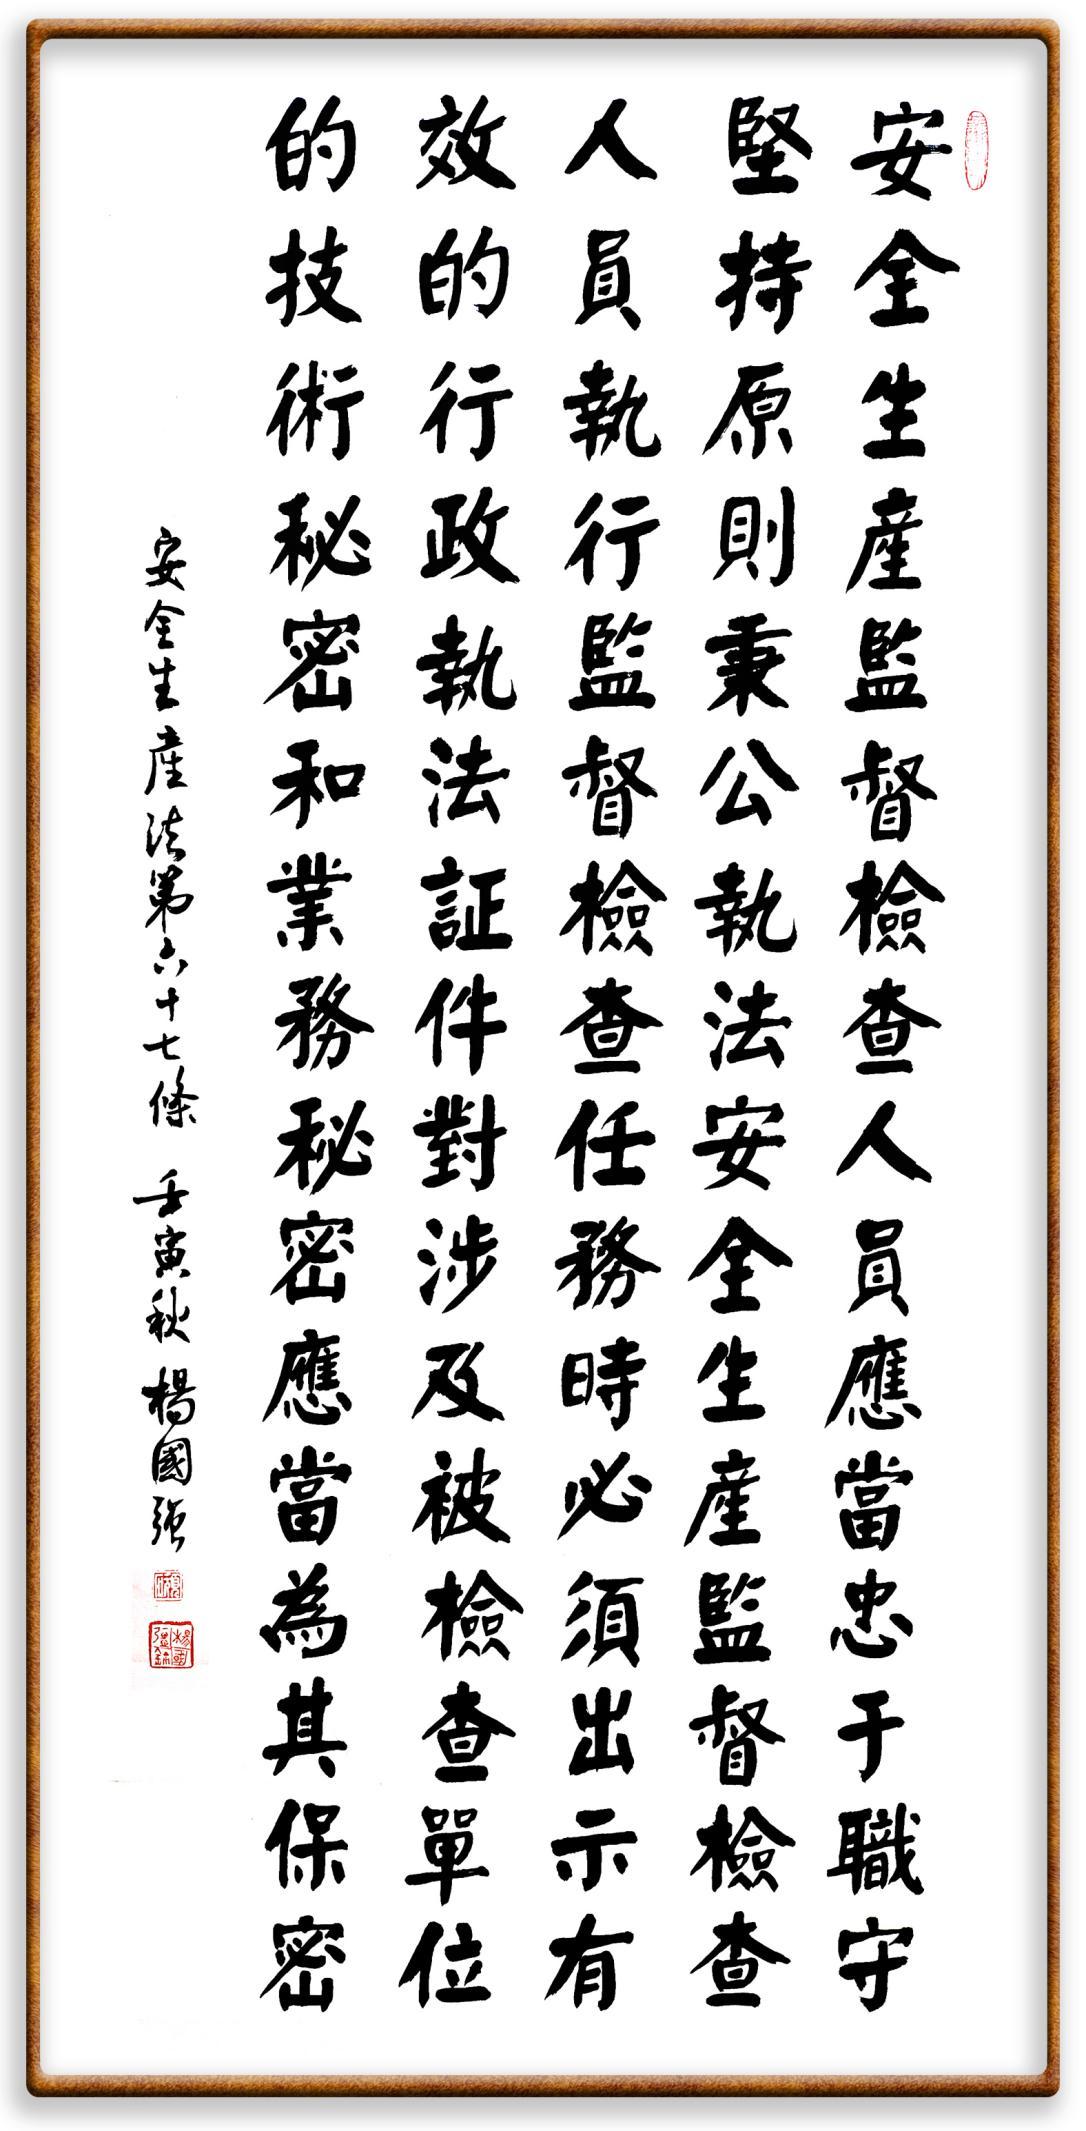 安全生産監督檢查人員應當忠于職守
堅持原則秉公執法安全生産監督檢查
人員執行監督檢查任務時必須出示有
效的行政執法証件對涉及被檢查單位
的技術秘密和業務秘密應當為其保密
安全生産法第六十七條 壬寅秋 楊國强